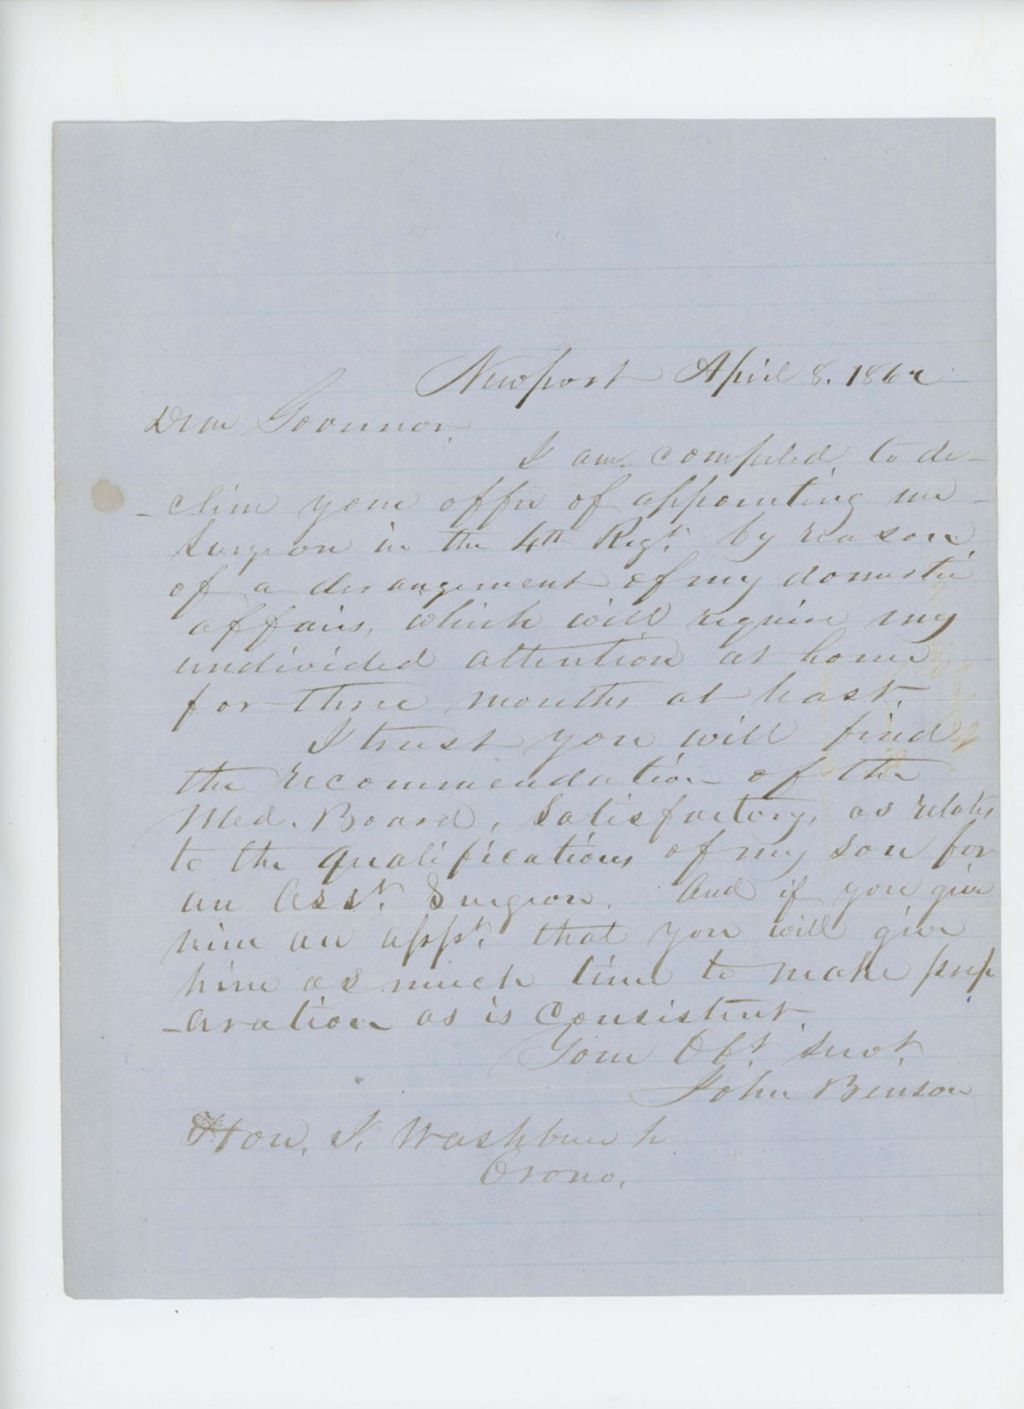 Newport April 8. 1862
Dear Governor.
I am compeled, to de-
-cline your offer of appointing me -
Surgeon in the 4th Regt. by reason
of a derangement of my domestic
affairs, which will require my
undivided attention at home
for three months at least.
I trust you will find
the recommendation of the
Med. Board, Satisfactory, as relates
to the qualifications of my son for
an Asst. Surgeon. And if you give
him an appt. that you will give
him as much time to make prep
-aration as is Consistent.
Your Obt. Servt.
John Benson
Hon. I. Washburn Jr
Orono.